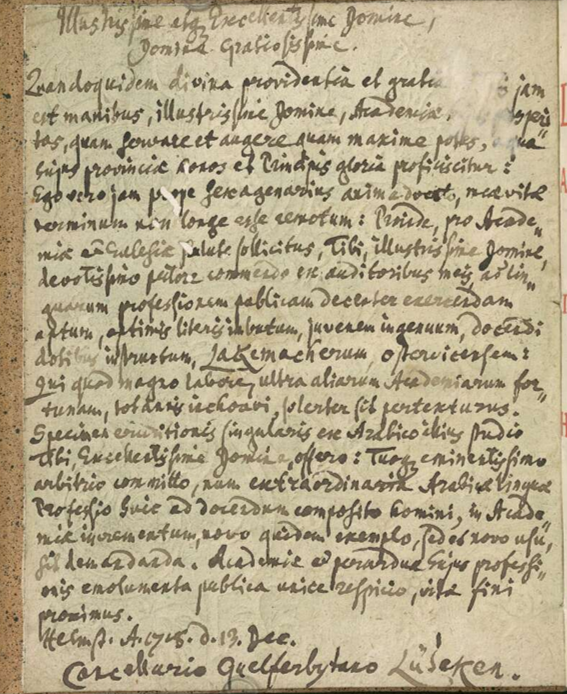 Illustrissime atq; Excellentissime Domine,
Domine Gratiosissime.
Quandoquidem divina providentia et gratia jam
est manibus, illustrissime Domine, Academiæ
tas, quam servare et augere quam maxime potes, qua
hujus provinciæ honos et Principis gloria proficiscitur:
Ego vero jam prope sexagenarius animadverto, meæ vitæ
terminum non longe esse remotum: Proinde, pro Acade-
miæ et Ecclesiæ salute sollicitus, Tibi, illustrissime Domine,
devotissimo pectore commendo ex auditoribus meis, ad lin-
guarum professionem publicam decenter exercendam
aptum, optimis literis imbutum, juvenem ingenuum, docendi
dotibus instructum, Jakemacherum, ostervicensem:
Qui quod magno labore, ultra aliarum Academiarum for-
tunam, tot annis inchoavi, solerter sit pertexturus.
Specimen eruditionis singularis ex Arabico illius studio
Tibi, Excellentissime Domine, offero: Tuoq; eminentissimo
arbitrio committo, num extraordinaria Arabicæ linguæ
Professio huic ad docendum composito homini, in Acade-
miæ incrementum, novo quidem exemplo, sed et novo usu,
sit demandanda. Academiæ et perarduæ hujus professi-
onis emolumenta publica unice respicio, vitæ fini
proximus.
Helmst. A. 1718. d. 13. Dec.
Cancellario Guelferbytano Lüdeken.